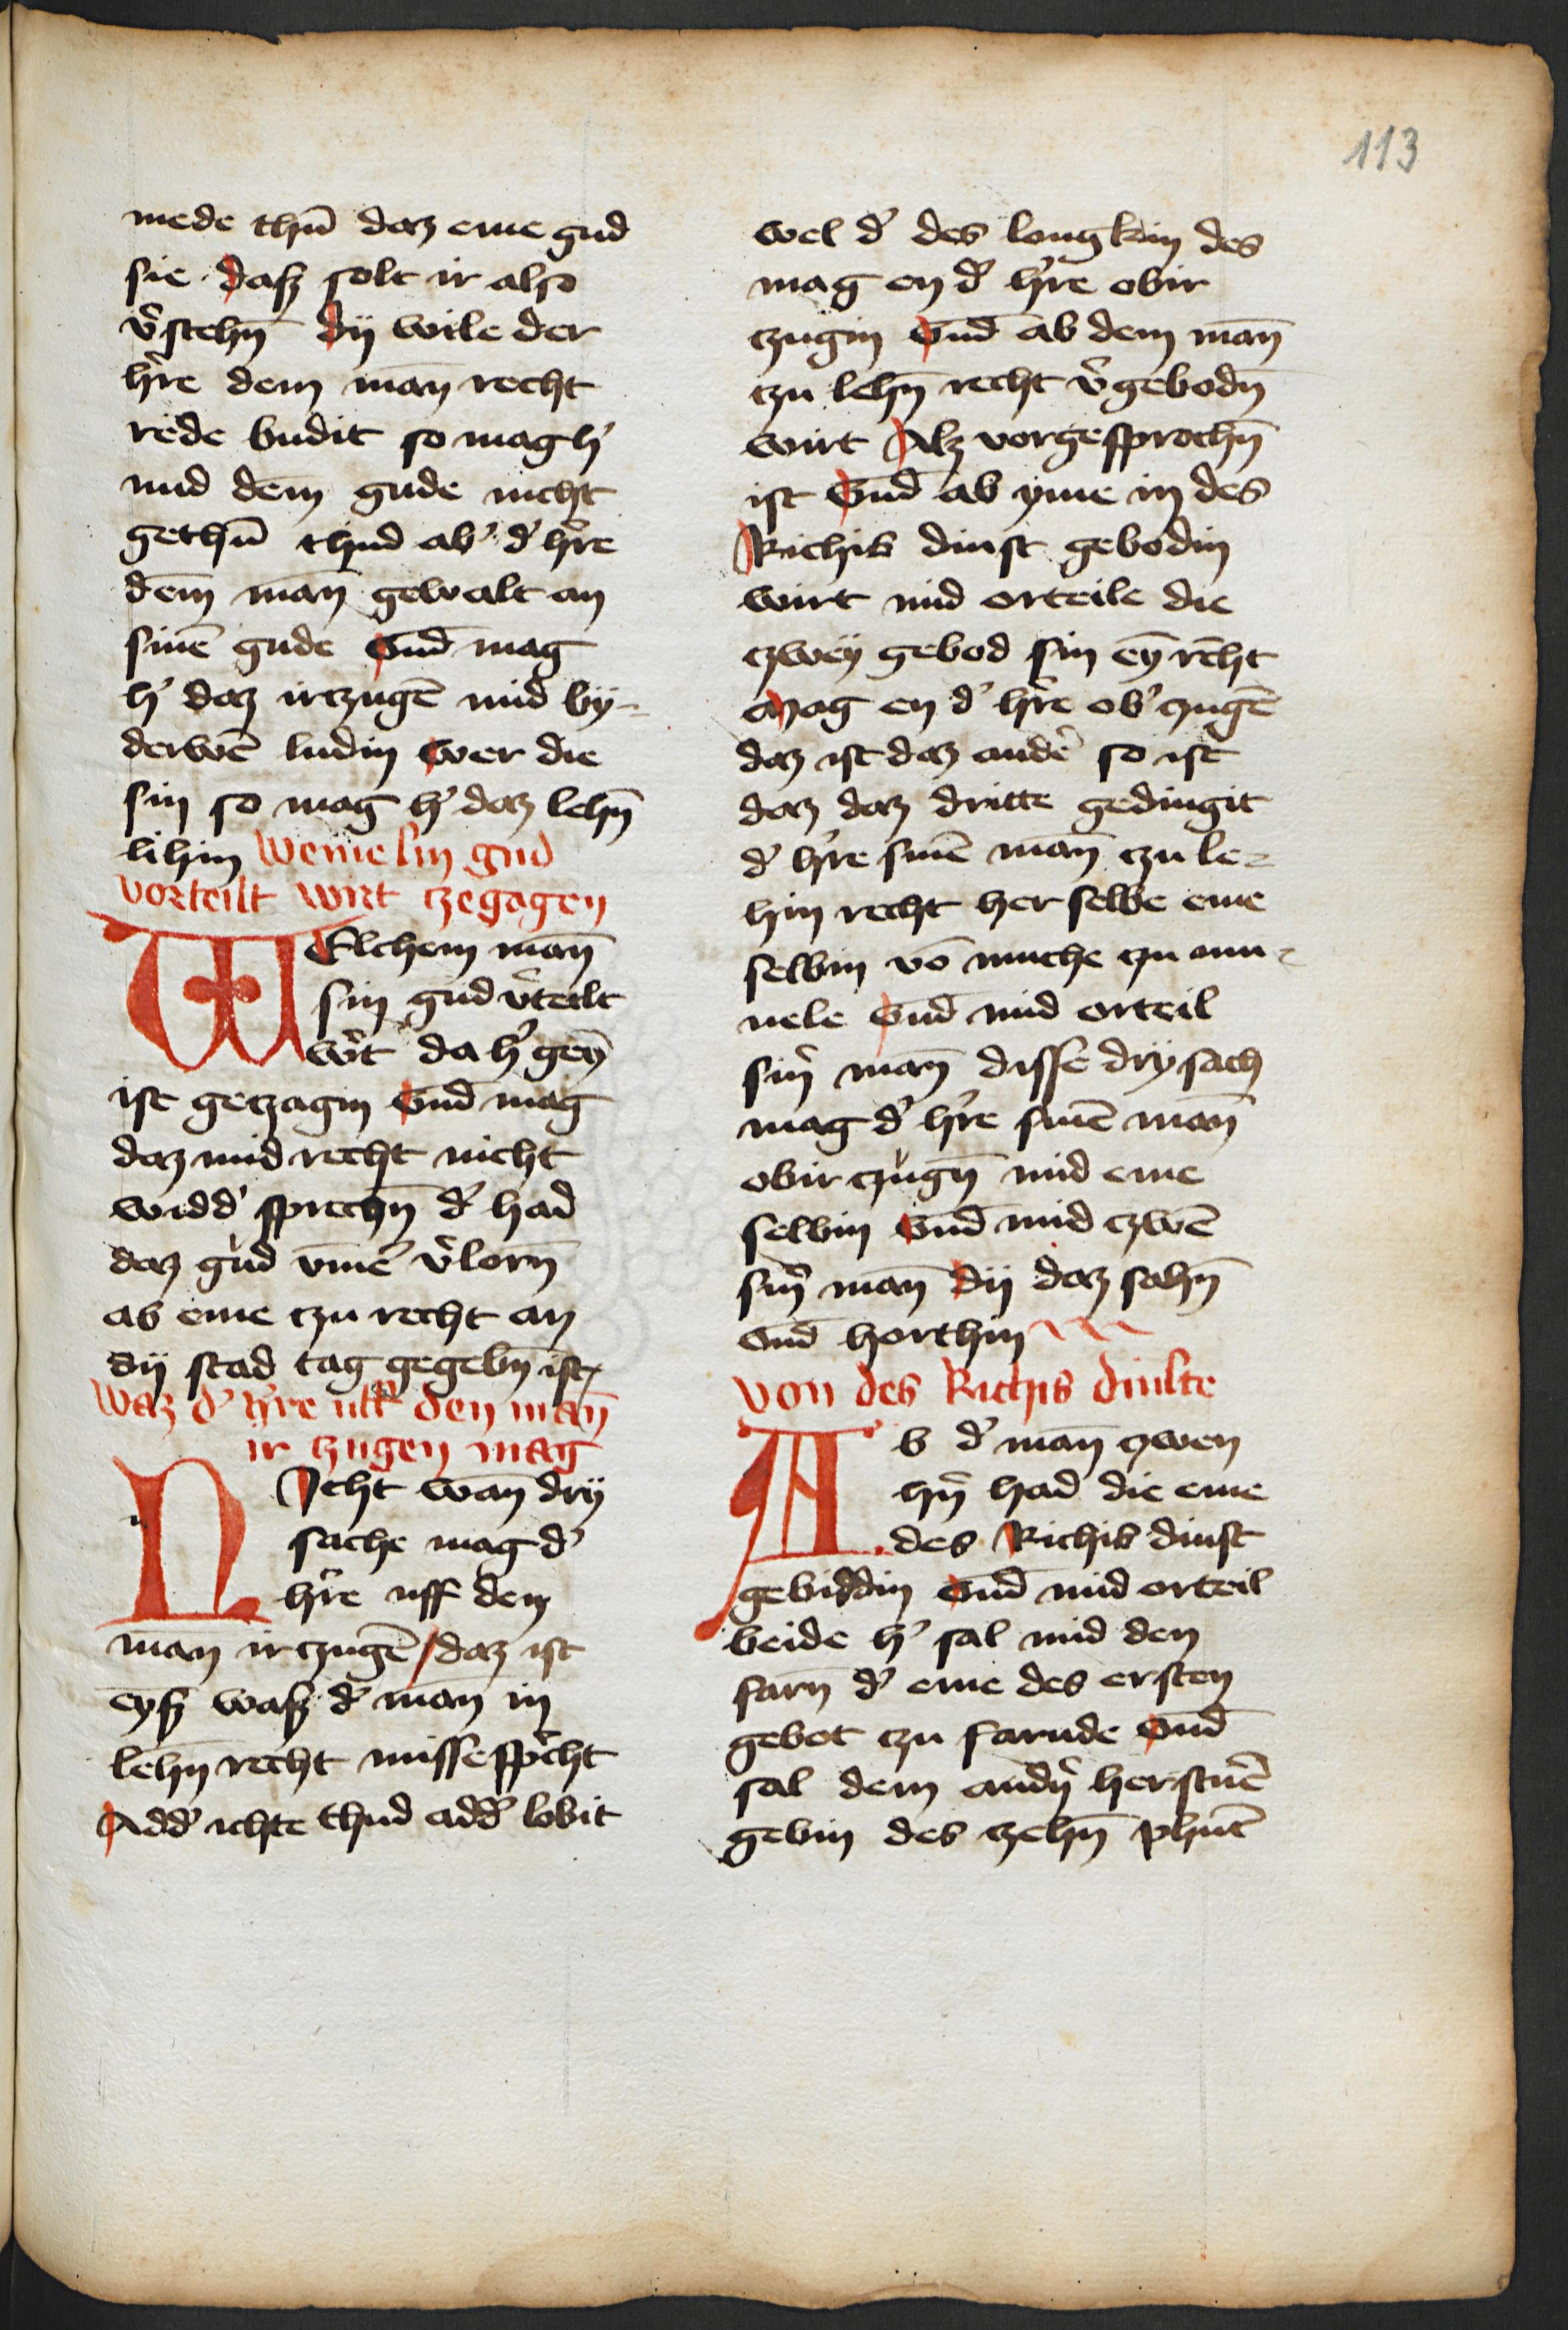 113
mede thū daz eme gud
sie daß solt ir also
v̓stehn̄ dij wile der
h̓re dem man recht
rede budit so mag h̓
mid dem gude nicht
gethū thud ab̓ d̓ h̓re
dem man gewalt an
sinē gude vnd mag
h̓ daz irtzugē mid by-
derwē ludin wer die
sin so mag h̓ daz lehn̄
lihin Weme sin gud
vorteilt wirt tzegagen
WElchem man̄
sin gud v̓teilt
w̓t da h̓ gen̄
ist getzagin vnd mag
daz mid recht nicht
widd̓ sprechn̄ d̓ had
daz gud vm̄e v̓lorn̄
ab eme tzu recht an
dij stad tag gegebn̄ ist
Waz d̓ h̓re uff den man̄
ir tzugen mag
NIcht wan drij
sache mag d̓
h̓re uff den
man irtzugē daz ist
eyß waß d̓ man in
lehn̄ recht missesp̓cht
Add̓ ichte thud add̓ lobit
wel d̓ des lougkin des
mag en d̓ h̓re obir
tzugin vnd ab dem man̄
tzu lehn̄ recht v̓gebodn̄
wirt Alz vorgesprochn̄
ist vnd ab yme in des
Richis dinst gebodin
wirt mid orteile die
tzwey gebod sin eȳ recht
mag en d̓ h̓re ob̓ tzugē
daz ist daz and̓e so ist
daz daz dritte gedingit
d̓ h̓re sinē man̄ tzu le-
hin recht her selbe eme
selbin vō munche tzu mu-
nele vnd mid orteil
sin̓ man̄ disse drij sach
mag d̓ h̓re sinē man̄
obir tzugn̄ mid eme
selbin vnd mid tzwē
sin̓ man̄ dij daz sahn̄
vnd horthin
Von des Richis dinste
Ab d̓ man̄ tzwen
hn̓ had die eme
des Richis dinst
gebiddin vnd mid orteil
beide h̓ sal mid den
farn̄ d̓ eme des ersten
gebot tzu farnde vnd
sal dem andn̓ herstuē
gebin des tzehn̄ phūt